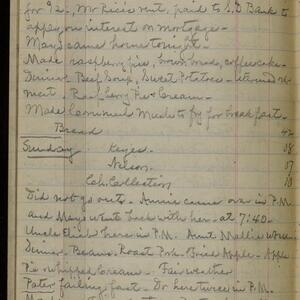 for 92-, Mr Ricci's rent, paid to S.D. Bank to
apply on interest on mortgage-
Mays came home tonight-
Made raspberry pies, brown bread, coffee cake-
Dinner Beef Soup, Sweet Potatoes-
meat- Raspberry Pie & Cream-
Made Cornmeal Mush to fry for breakfast-
Bread 42
Sunday Keyes 08
Nelson 07
Ch. Collection 10
Did not go out- Annie came over in P.M.
and Mays went back with her- at 7:40-
Uncle Elick here in P.M. Aunt Mallie worse-
Dinner- Beans, Roast Pork- Fried Apple- Apple
Pie whipped Cream- Fair weather
Pater failing fast- Dr. here twice in P.M.